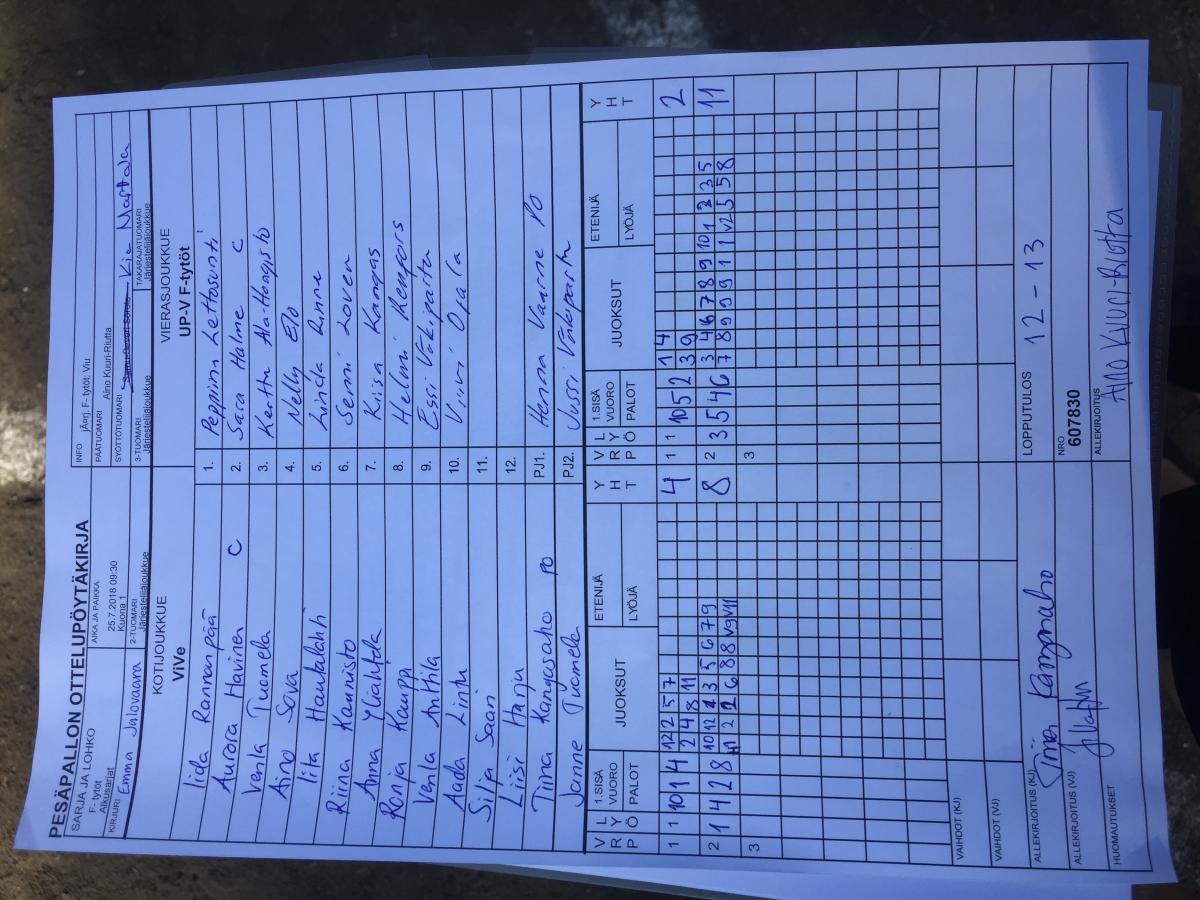 PESÄPALLON OTTELUPÖYTÄKIRJA
SARJA JA LOHKO
F- tytöt
Alkusarjat
AIKA JA PAIKKA
25.7.2018 09:30
Kuona 1
INFO
jÃ¤rj. F- tytöt: Viu
PÄÄTUOMARI
Aino Kuuri-Riutta
SYÖTTÖTUOMARI
KIRJURI Emma Jalovaara
2-TUOMARI
Järjestelijäjoukkue
3-TUOMARI
Järjestelijäjoukkue
TAKARAJATUOMARI
Järjestelijäjoukkue
Kia Martala
KOTIJOUKKUE
ViVe
VIERASJOUKKUE
UP-V F-tytöt
Iida Rannanpää 1. Peppiina Lettosunti
Aurora Havinen C 2. Sara Halme C
Venla Tuomela 3. Kerttu Ala-Hongisto
Aino Sava 4. Nelly Elo
Iita Hautalahti 5. Linda Rinne
Riina Kaunisto 6. Senni Loven
Anna Yliahtela 7. Kiisa Kangas
Ronja Kauppi 8. Helmi Renfors
Venla Anttila 9. Essi Väkiparta
Aada Lintu 10. Viivi Ojala
Silja Saari 11.
Liisi Harju 12.
Tiina Kangasaho PO PJ1. Henna Vaarne PO
Janne Tuomela PJ2. Jussi Väkiparta
V R P L Y Ö 1.SISÄ VUORO PALOT JUOKSUT ETENIJÄ LYÖJÄ Y H T V R P L Y Ö 1.SISÄ VUORO PALOT JUOKSUT ETENIJÄ LYÖJÄ Y H T
1 1 10 1 4 12 2 5 7 4 1 1 10 5 2 1 4 2
2 4 8 11 3 9
2 1 4 2 8 10 12 1 3 5 6 7 9 8 2 3 5 4 6 3 4 6 7 8 9 10 1 2 3 5 11
11 2 2 6 8 8 v9 v11 7 8 9 9 9 1 1 v2 5 5 8
3 3
VAIHDOT (KJ)
VAIHDOT (VJ)
ALLEKIRJOITUS (KJ) Tiina Kangasaho
ALLEKIRJOITUS (VJ)
HUOMAUTUKSET
LOPPUTULOS 12 - 13
NRO
607830
ALLEKIRJOITUS
AINO KUURI-RIUTTA